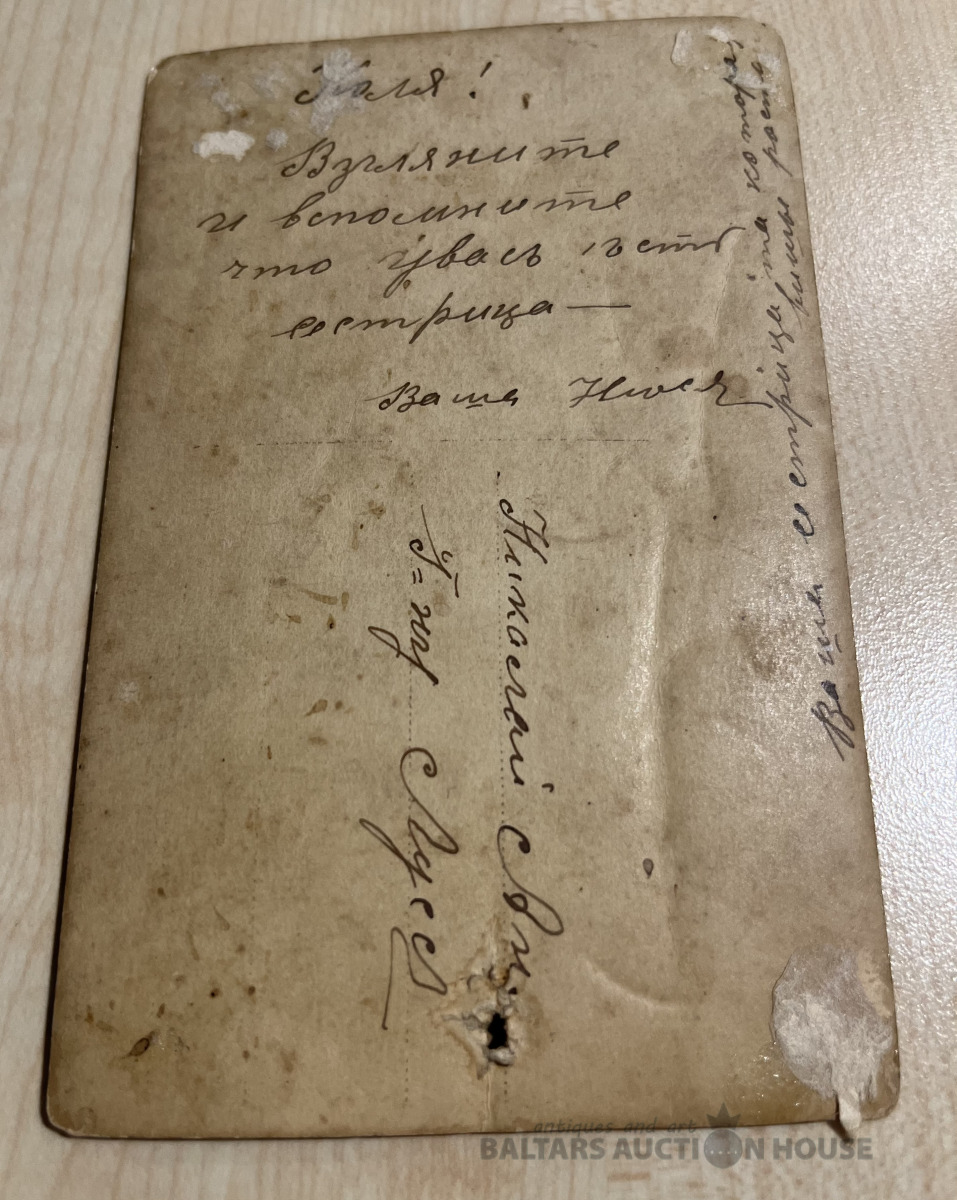 Коля!
Взгляните
и вспомните
что у васъ есть
сестрица—
Ваша Нюся
Ваша сестрица та которая
Николай Ан.
antiques and art
BALTARS AUCTION HOUSE